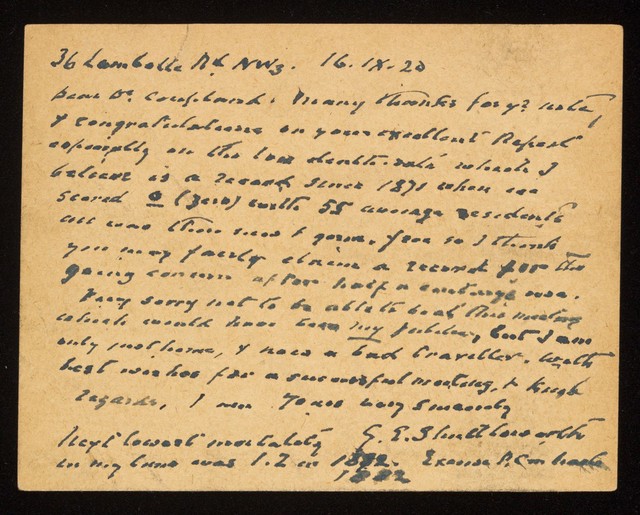 36 Lambolle Rd. NW3. 16. IX. 20
Dear Dr. Coupland. Many thanks for yr. note,
& congratulations on your excellent Report
especially on the low death-rate which I
believe is a record since 1871 when we
scored 0 (zero) with 55 average residents
all was then new & good, for so I think
you may fairly claim a record for the
going concern after half a century's use.
Very sorry not to be able to be at this meeting
which would have been my Jubilee, but I am
only just home, & now a bad traveller. With
best wishes for a successful meeting, & kind
regards, I am Yours very sincerely
G. E. Shuttleworth
Next lowest mortality
in my time was 1.2 in 1882. Excuse P. Card haste
1882